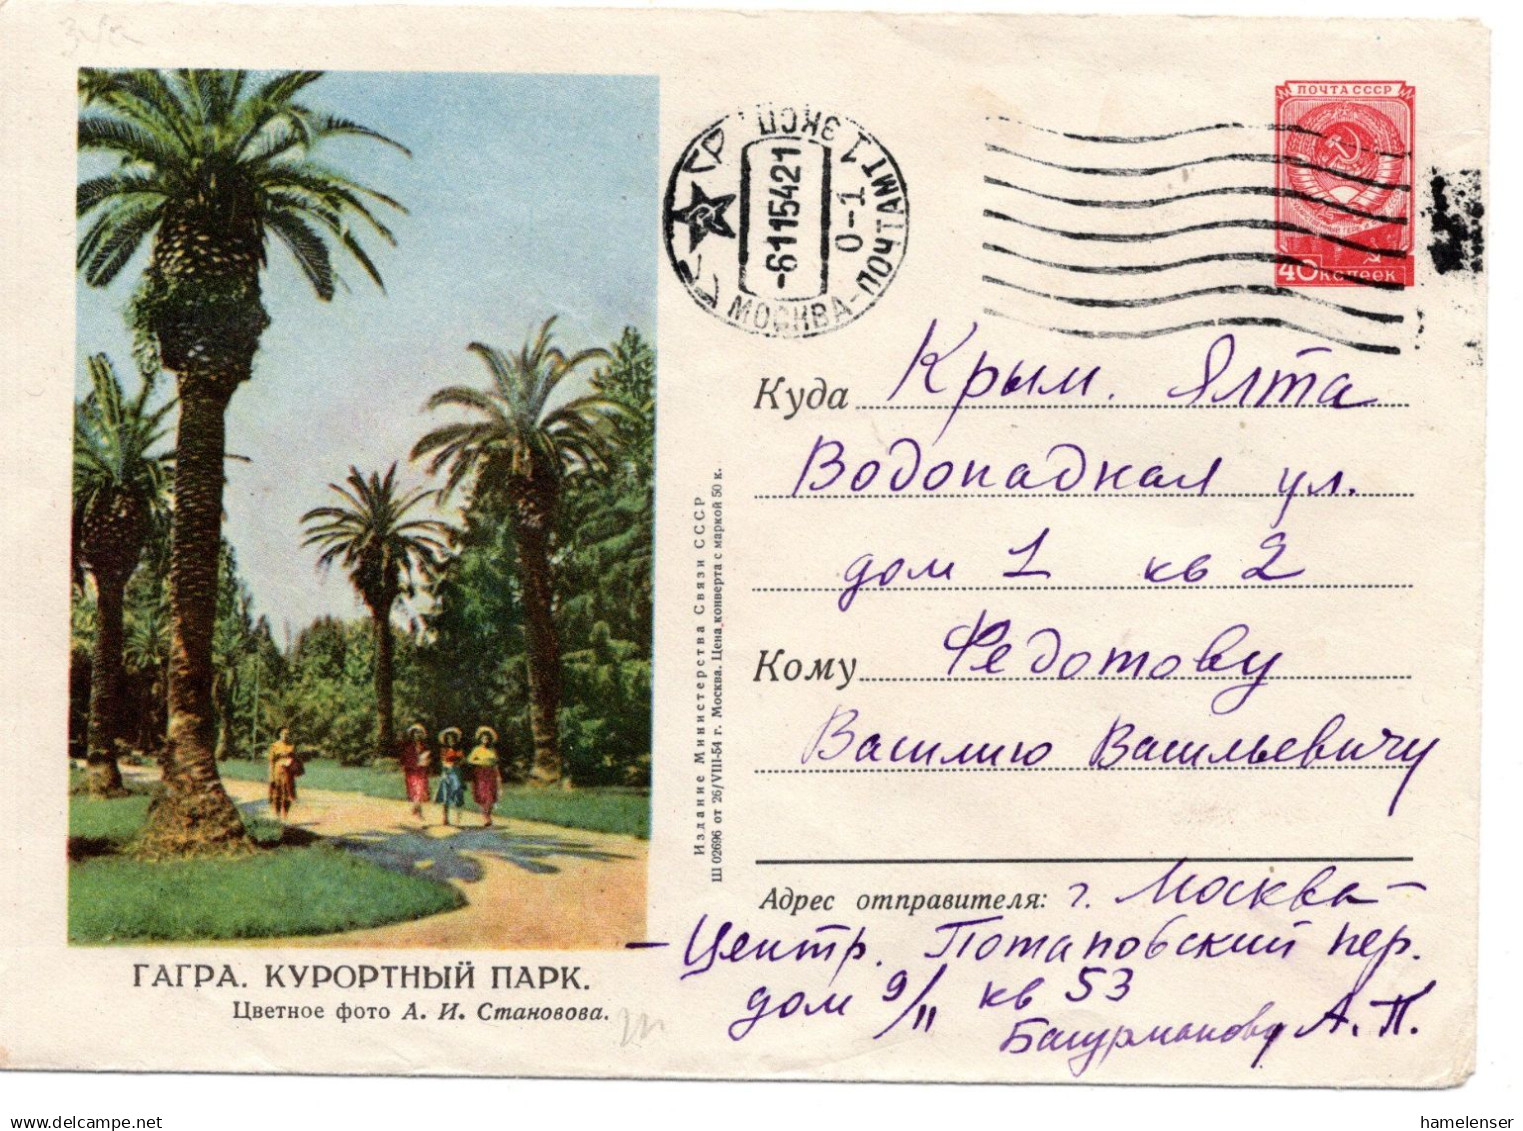 ПОЧТА СССР
40 копеек
МОСКВА-ПОЧТАМТ
1 ЭКСП
-6115421
0-1
Куда Крым. Ялта
Водопадная ул.
дом 1 кв 2
Кому Федотову
Василию Васильевичу
Адрес отправителя: г. Москва-
-Центр. Потаповский пер.
дом 9/11 кв 53
А. П.
Издание Министерства Связи СССР
Ш 02696 от 26/VIII-54 г. Москва. Цена конверта с маркой 50 к.
ГАГРА. КУРОРТНЫЙ ПАРК.
Цветное фото А. И. Становова.
delcampe.net
hamelenser